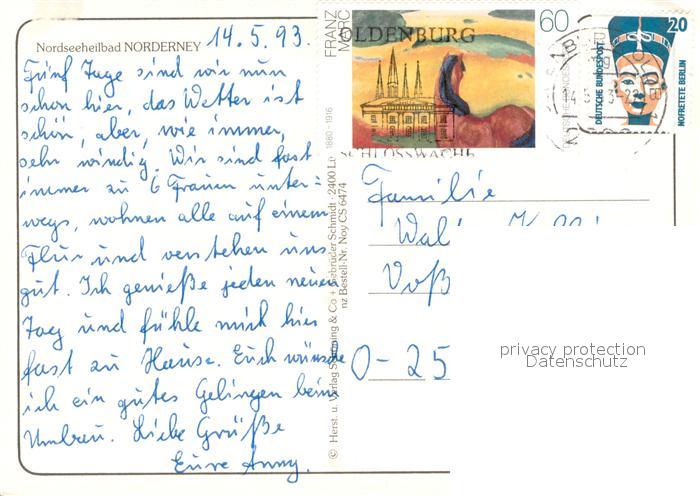 Nordseeheilbad NORDERNEY 14.5.93.
Fünf Tage sind wir nun
schon hier, das Wetter ist
schön, aber, wie immer,
sehr windig. Wir sind fast
immer zu 6 Frauen unter=
wegs, wohnen alle auf einem
Flur und verstehen uns
gut. Ich genieße jeden neuen
Tag und fühle mich hier
fast zu Hause. Euch wünsche
ich ein gutes Gelingen beim
Umbau. Liebe Grüße
Eure Anny.
© Herst. u. Verlag Schöning & Co + Gebrüder Schmidt · 2400 Lü
nz Bestell-Nr. Noy CS 6474
FRANZ MARC
1880-1916
60
OLDENBURG
SCHLOSSWACHE
20
DEUTSCHE BUNDESPOST
NOFRETETE BERLIN
Familie
Voß
O-25
privacy protection
Datenschutz